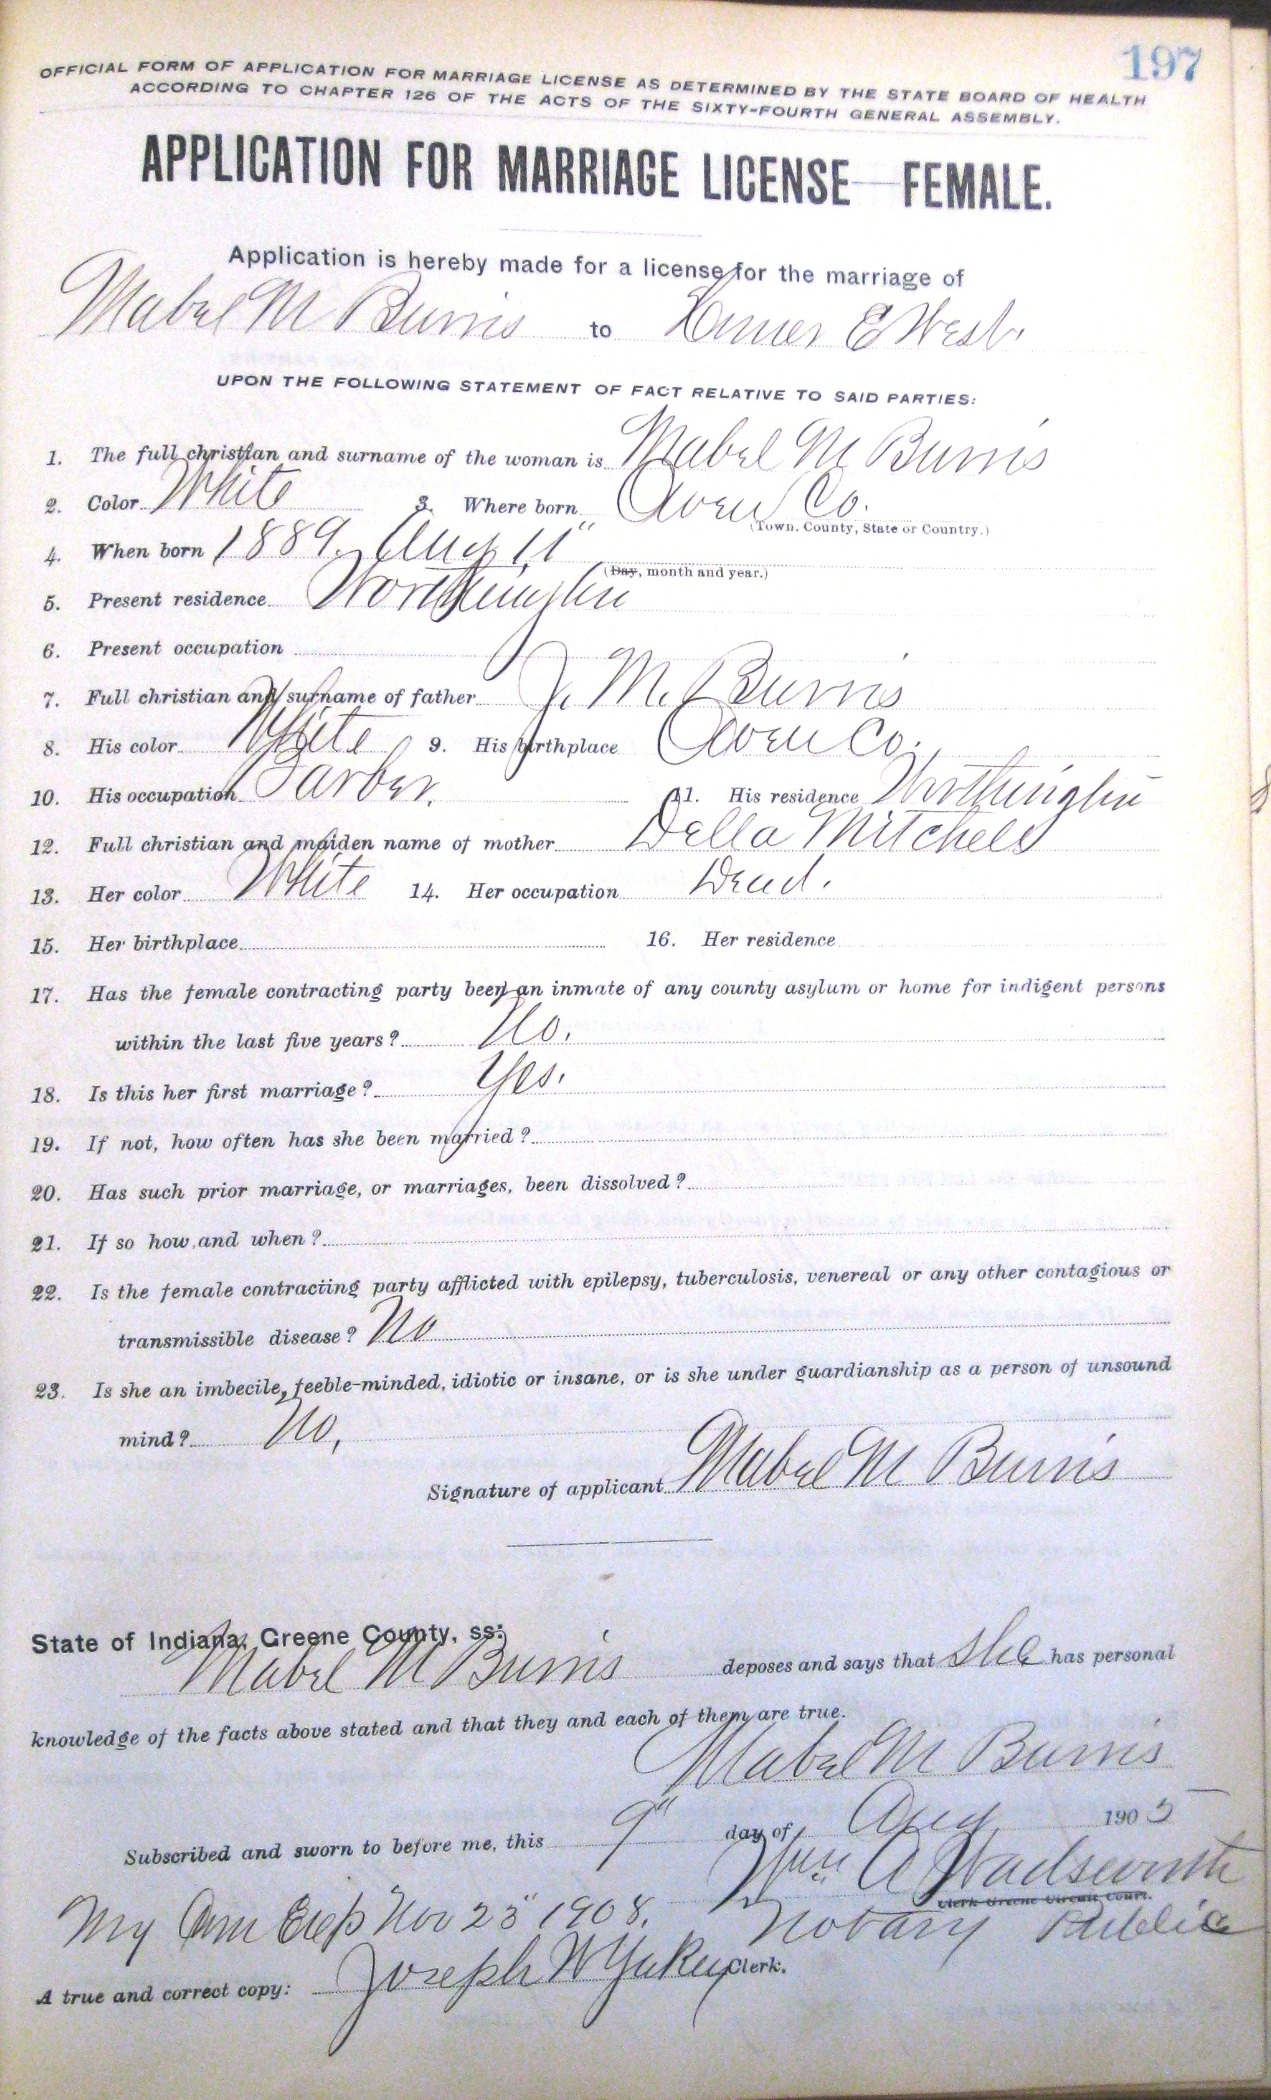 197
OFFICIAL FORM OF APPLICATION FOR MARRIAGE LICENSE AS DETERMINED BY THE STATE BOARD OF HEALTH
ACCORDING TO CHAPTER 126 OF THE ACTS OF THE SIXTY-FOURTH GENERAL ASSEMBLY.
APPLICATION FOR MARRIAGE LICENSE—FEMALE.
Application is hereby made for a license for the marriage of
Mabel M Burris to Elmer E West.
UPON THE FOLLOWING STATEMENT OF FACT RELATIVE TO SAID PARTIES:
1. The full christian and surname of the woman is Mabel M Burris
2. Color White 3. Where born Owen Co.
(Town, County, State or Country.)
4. When born 1889. Aug 11"
(Day, month and year.)
5. Present residence Worthington
6. Present occupation
7. Full christian and surname of father J. M. Burris
8. His color White 9. His birthplace Owen Co.
10. His occupation Barber. 11. His residence Worthington
12. Full christian and maiden name of mother Della Mitchell
13. Her color White 14. Her occupation Dead.
15. Her birthplace 16. Her residence
17. Has the female contracting party been an inmate of any county asylum or home for indigent persons
within the last five years? No.
18. Is this her first marriage? Yes.
19. If not, how often has she been married?
20. Has such prior marriage, or marriages, been dissolved?
21. If so how and when?
22. Is the female contracting party afflicted with epilepsy, tuberculosis, venereal or any other contagious or
transmissible disease? No
23. Is she an imbecile, feeble-minded, idiotic or insane, or is she under guardianship as a person of unsound
mind? No,
Signature of applicant Mabel M Burris
State of Indiana, Greene County, ss:
Mabel M Burris deposes and says that she has personal
knowledge of the facts above stated and that they and each of them are true.
Mabel M Burris
Subscribed and sworn to before me, this 9" day of Aug 1905
Wm A Wadsworth
Clerk Greene Circuit Court.
My Com Exp Nov 23" 1908. Notary Public
A true and correct copy: Joseph W Yakey Clerk.